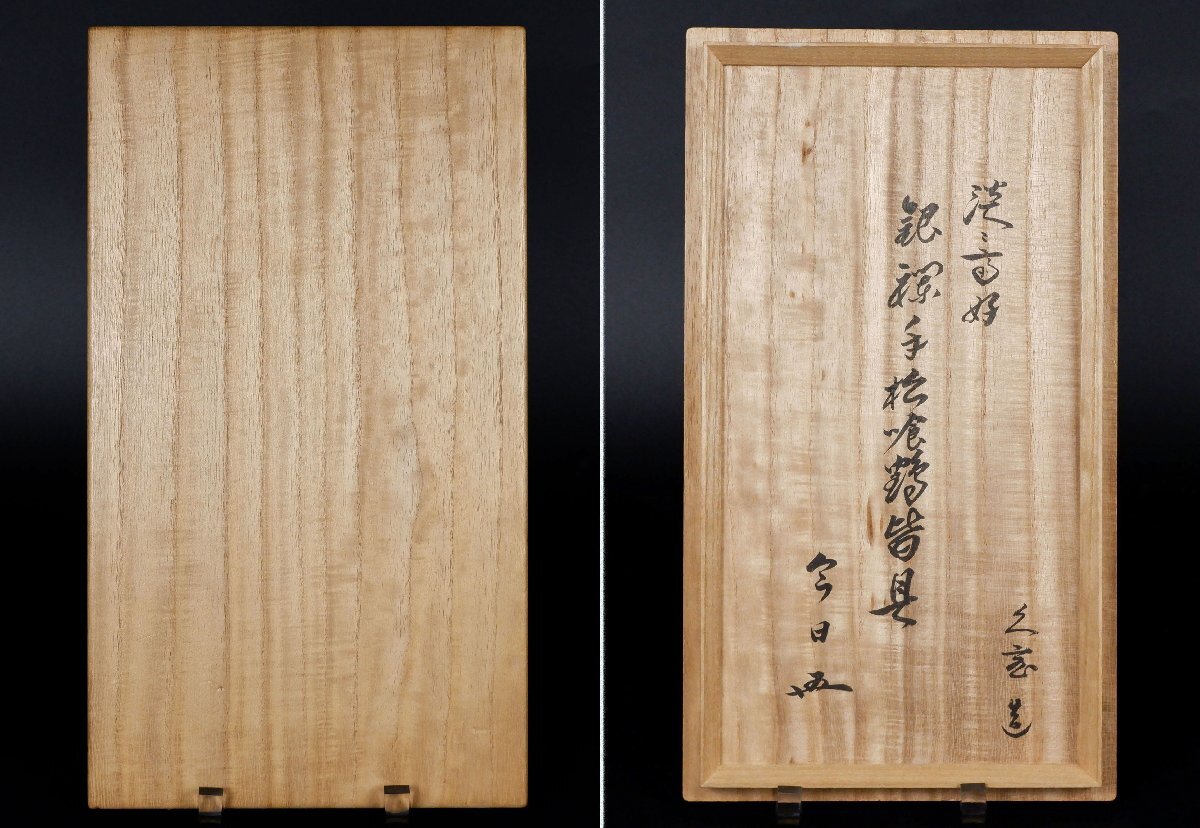 淡々斎好
久宝造
銀襴手松喰鶴皆具
今日